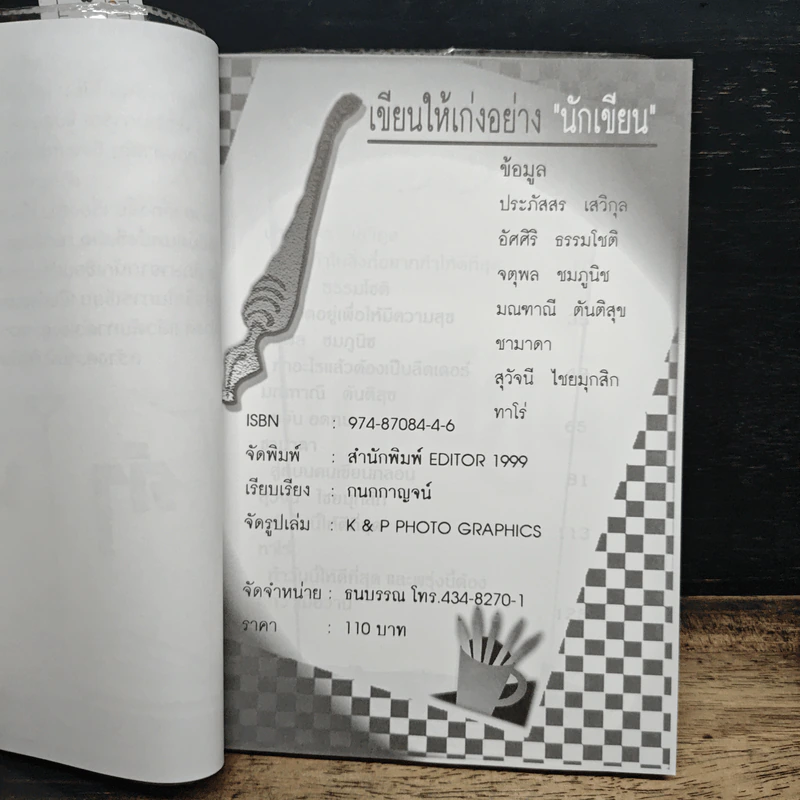 เขียนให้เก่งอย่าง "นักเขียน"
ข้อมูล
ประภัสสร เสวิกุล
อัศศิริ ธรรมโชติ
จตุพล ชมภูนิช
มณฑาณี ตันติสุข
ชามาดา
สุวัจนี ไชยมุกสิก
ทาโร่
ISBN : 974-87084-4-6
จัดพิมพ์ : สำนักพิมพ์ EDITOR 1999
เรียบเรียง : กนกกาญจน์
จัดรูปเล่ม : K & P PHOTO GRAPHICS
จัดจำหน่าย : ธนบรรณ โทร.434-8270-1
ราคา : 110 บาท